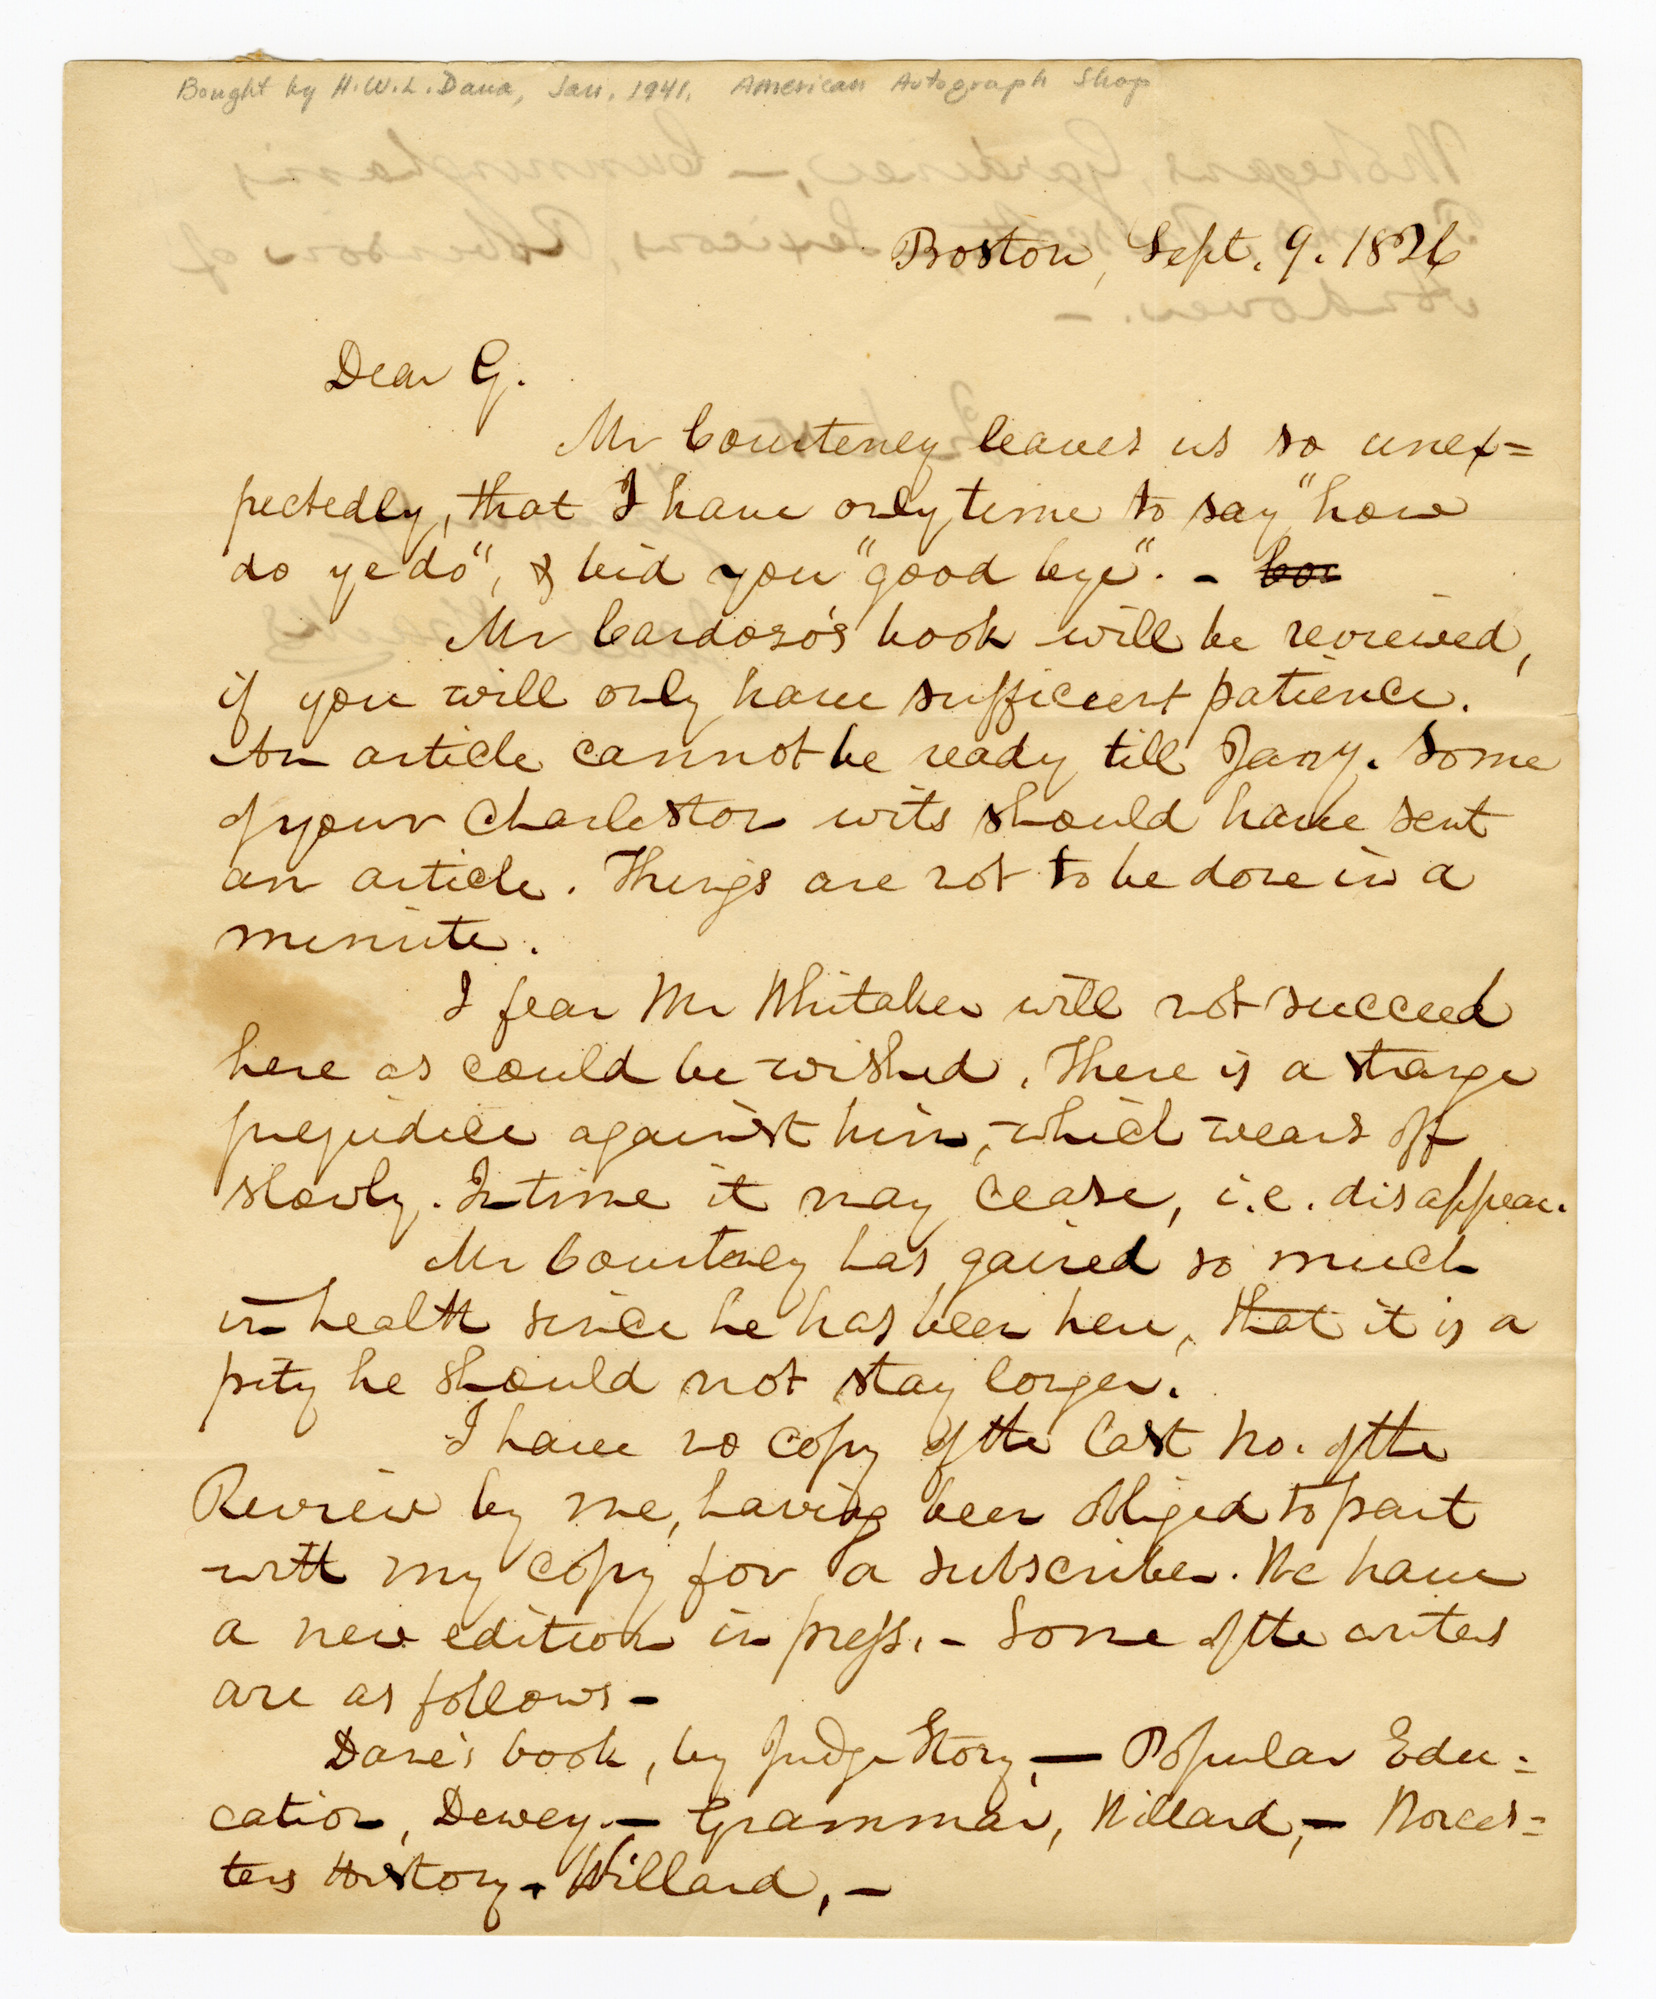 Bought by H.W.L. Dana, Jan. 1941. American Autograph Shop
Boston, Sept. 9. 1826
Dear G.
Mr Courteney leaves us so unex=
pectedly, that I have only time to say "how
do ye do", & bid you "good bye". -
Mr Cardozo's book will be reviewed,
if you will only have sufficient patience.
An article cannot be ready till Jany. Some
of your Charleston wits should have sent
an article. Things are not to be done in a
minute.
I fear Mr Whitaker will not succeed
here as could be wished. There is a strange
prejudice against him, which wears off
slowly. In time it may cease, i.e. disappear.
Mr Courteney has gained so much
in health since he has been here, that it is a
pity he should not stay longer.
I have no copy of the last No. of the
Review by me, having been obliged to part
with my copy for a subscriber. We have
a new edition in press. - Some of the writers
are as follows -
Dane's book, by Judge Story, — Popular Edu=
cation, Dewey. — Grammar, Willard, — Worces=
ters History. Willard, —
Mohegans, Gardiner, — Cunningham's
Lexicons, Robinson of
Andover. —